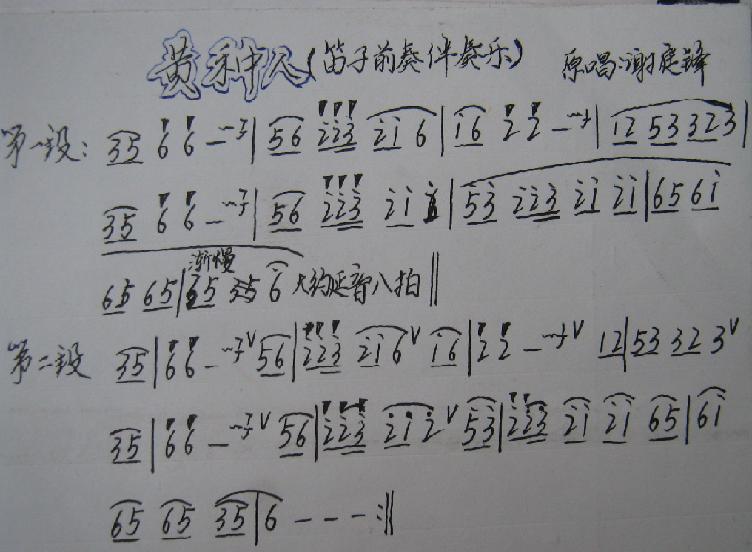 黄种人(笛子前奏伴奏乐) 原唱:谢庭锋
第一段: 35 66 — | 56 2̇2̇3̇ 2̇1̇6 | 1̇6 2̇2̇ — | 12 53 323 |
35 66 — | 56 2̇2̇3̇ 2̇1̇ | 5̇3̇ 2̇2̇3̇ 2̇1̇ 2̇1̇ | 65 61̇
65 65 | 渐慢 35 35 6 大约延音八拍 ‖
第二段 35 | 66 — V 56 | 2̇2̇3̇ 2̇1̇6 V 1̇6 | 2̇2̇ — V 12 | 53 32 3 V
35 | 66 — V 56 | 2̇2̇3̇ 2̇1̇2̇ V 5̇3̇ | 2̇2̇3̇ 2̇1̇ 2̇1̇ 65 | 61̇
65 65 35 | 6 — — — :‖